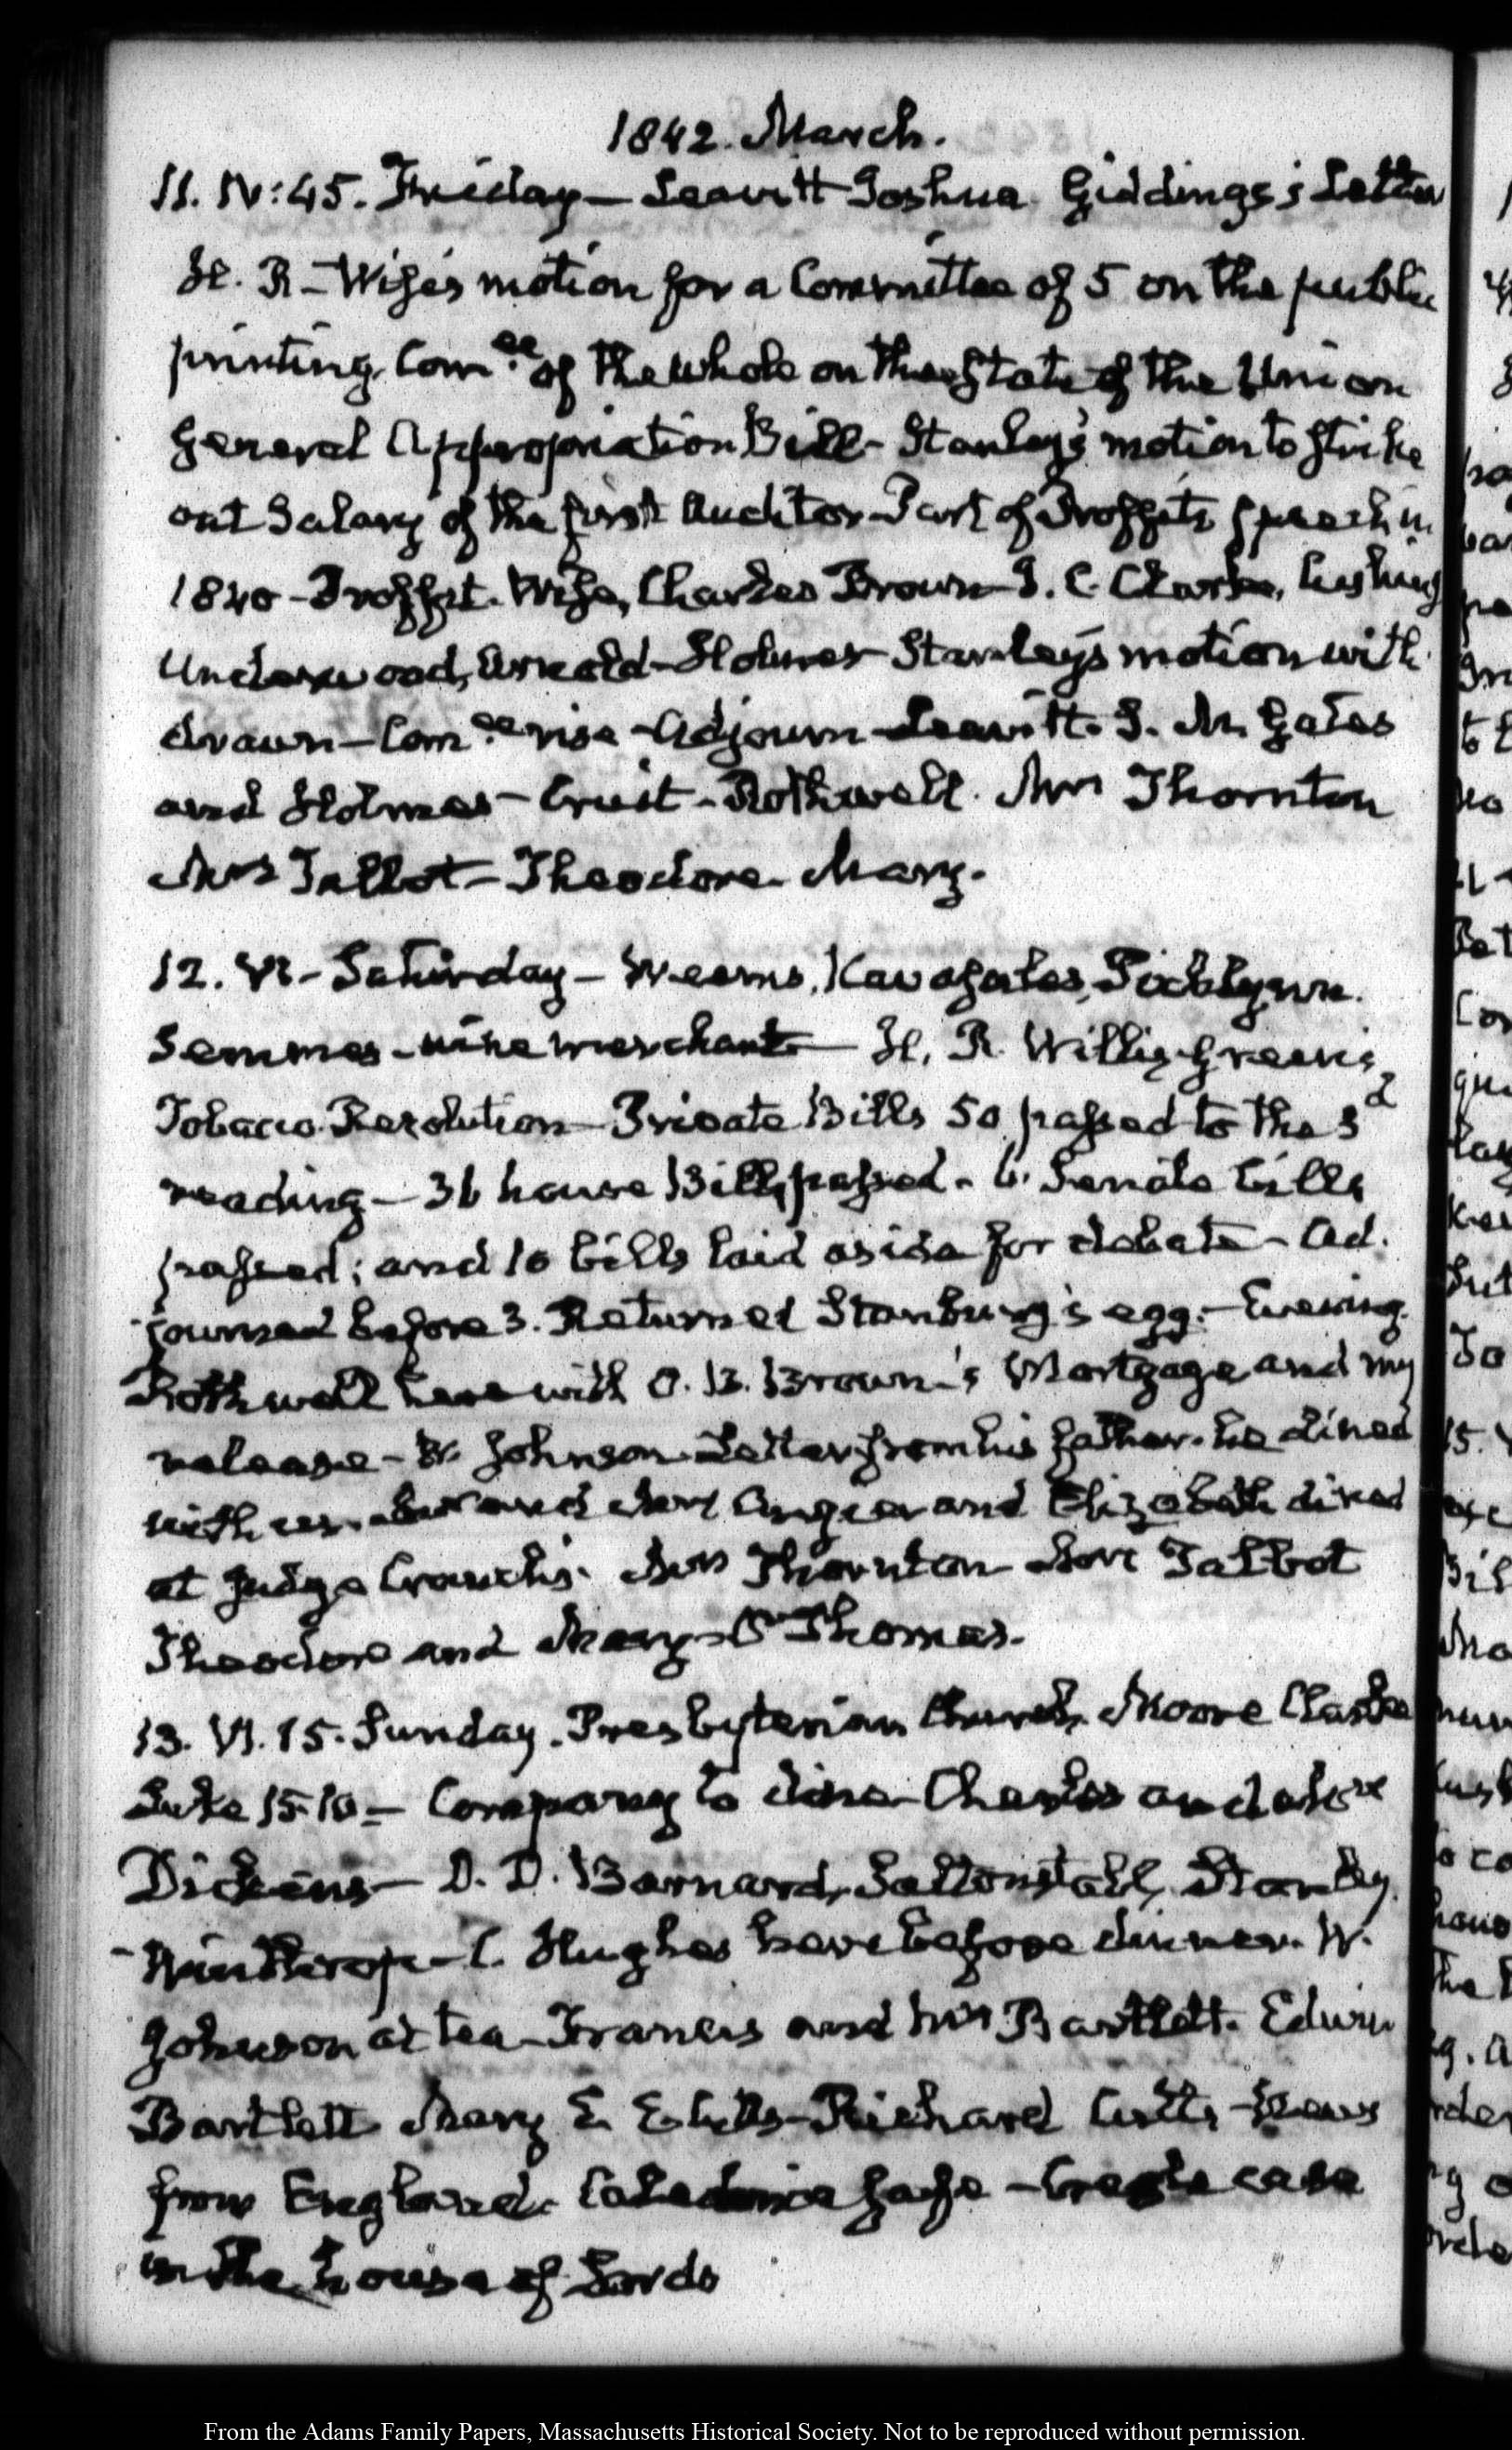 1842. March.
11. IV:45. Friday — Leavitt Joshua Giddings's Letter
H. R — Wise's motion for a Committee of 5 on the public
printing. Com.ee of the whole on the State of the Union
General Appropriation Bill — Stanley's motion to strike
out Salary of the first Auditor — Part of Proffit's speech in
1840 — Proffit. Wise, Charles Brown — J. C. Clark, Cushing
Underwood, Arnold — Holmes — Stanley's motion with
drawn — Com.ee rise — Adjourn — Leavitt. S. M. Gates
and Holmes — Cruit — Rothwell. Mrs Thornton
Mrs Talbot — Theodore. Mary.
12. VI — Saturday — Weems,
Semmes — wine merchant — H. R. Willis Green's
Tobacco Resolution — Private Bills 50 passed to the 3d
reading — 36 house Bills passed — 6. Senate bills
passed; and 10 bills laid aside for debate — Ad.
journed before 3. Returned Stanbury's egg. — Evening.
Rothwell here with O. B. Brown's Mortgage and my
release — W. Johnson Letter from his father. he dined
with us. and Mary Angier and Elizabeth dined
at Judge Cranch's. Mrs Thornton Mrs Talbot
Theodore and Mary — Thomas.
13. VI. 15. Sunday. Presbyterian Church. Moore Clarke
Luke 15.10 — Company to dine — Charles and Mrs
Dickens — D. D. Barnard, Saltonstall, Stanley.
Winthrop — C. Hughes here before dinner. W.
Johnson at tea — Francis and Mrs Bartlett. Edwin
Bartlett Mary E. E. Cutts — Richard Cutts — News
from England. Caledonia safe — Creole case
in the house of Lords
From the Adams Family Papers, Massachusetts Historical Society. Not to be reproduced without permission.